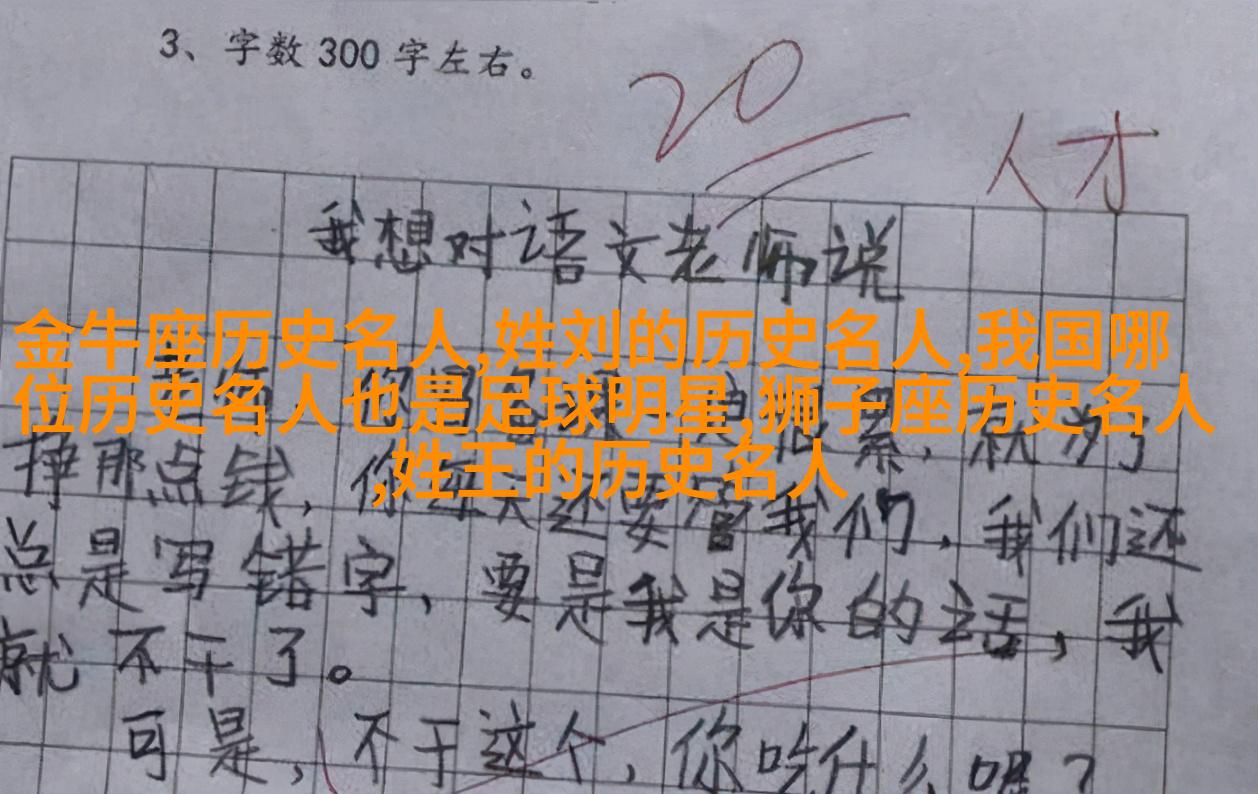 3、字数300字左右。
20
人才
我想对语文老师说
金牛座历史名人,姓刘的历史名人,我国哪
位历史名人也是足球明星,狮子座历史名人
,姓王的历史名人
累,就为了
挣那点钱,你每天还要管我们,我们还
总是写错字,要是我是你的话,我
就不干了。
可是,不干这个,你吃什么呢?